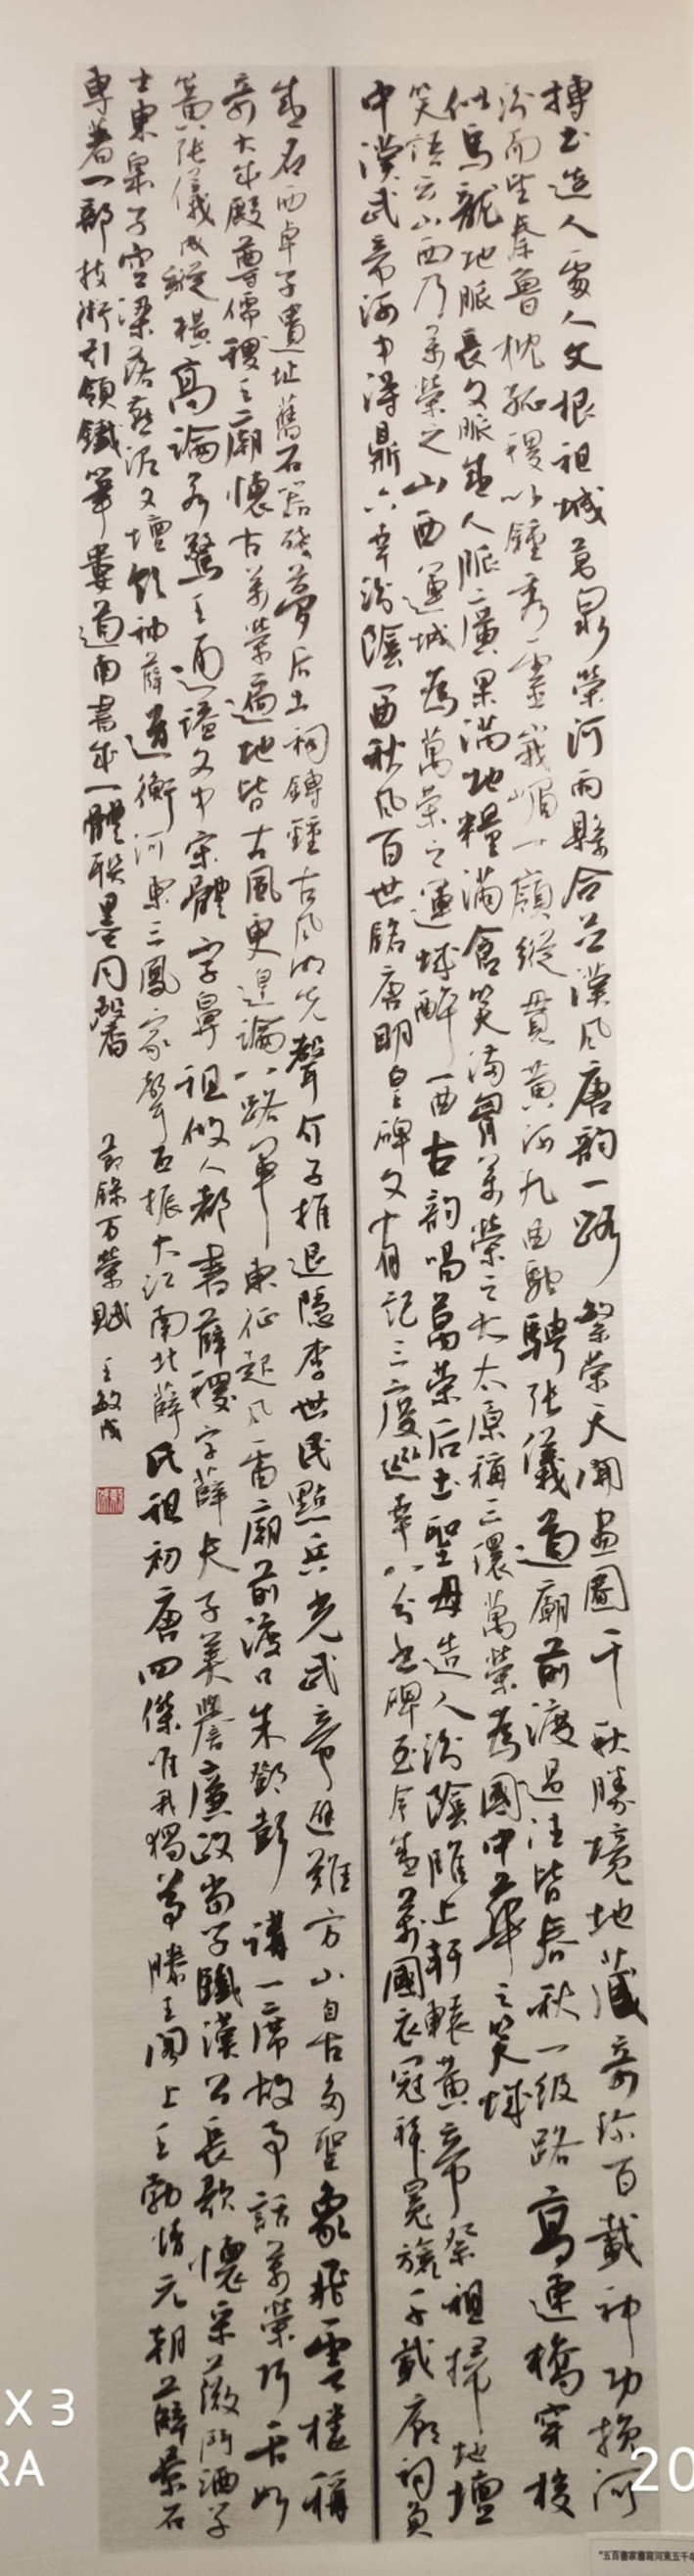 摶土造人處人文根祖城萬泉榮河兩縣合並漢風唐韵一路繁榮天開畫圖千秋勝境地藏奇珍百載神功擁河
汾而望秦魯枕孤稷以鍾秀靈峨嵋一嶺縱貫黃河九曲馳騁張儀道廟前渡過往皆春秋一級路高速橋穿梭
似烏龍地脈長文脈盛人脈廣果滿地糧滿倉笑滿胃萬榮之大太原稱三環萬榮為國中華之笑城
笑語云山西乃萬榮之山西運城為萬榮之運城醉一曲古韵唱萬榮后土聖母造人汾陰脽上軒轅黃帝祭祖掃地壇
中漢武帝河中得鼎六幸汾陰一曲秋風百世銘唐明皇碑文十有記三度巡幸八分書碑至今在萬國衣冠拜冕旒千載廟祠
在石西卓子遺址舊石器殘夢后土祠鎛鍾古風沉先聲介子推退隱李世民點兵光武帝避難方山自古多聖象飛雲樓稱
奇大成殿尊儒稷王廟懷古萬榮遍地皆古風更遑論八路軍東征起風雷廟前渡口朱鄧彭講一席故事話萬榮巧舌如
簧張儀成縱橫高論為驚王通謚文中宗體字鼻祖做人都書薛稷字薛夫子美譽廉政當子職漢公長歌懷采薇鬥酒子
士東皋子空梁落燕泥文壇領袖薛道衡河東三鳳家聲丕振大江南北薛氏祖初唐四傑唯我獨尊滕王閣上王勃情元朝薛景石
專著一部技術引領鐵筆婁道南書成一體聯墨同馨
節錄萬榮賦 王敏成
X3
RA
20
"五百書家書寫河東五千年